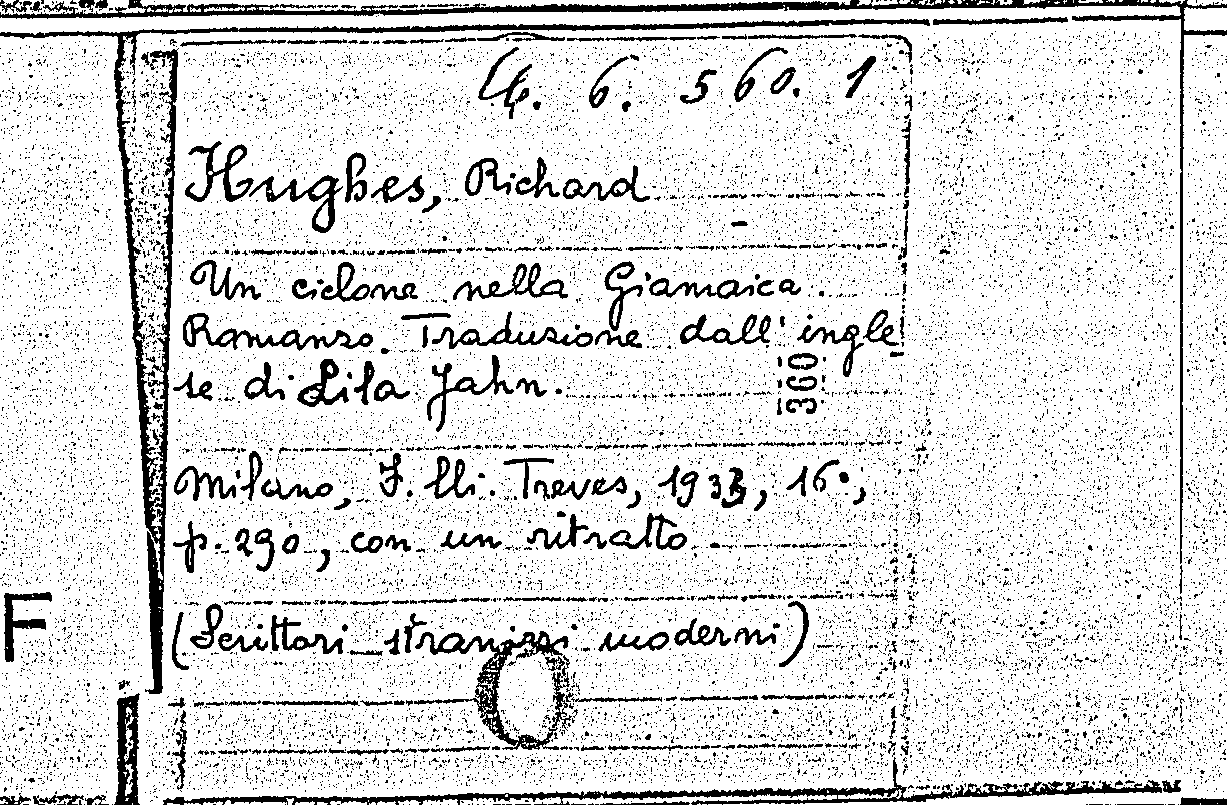 6. 560. 1
Hughes, Richard
Un ciclone nella Giamaica.
Romanzo. Traduzione dall' ingle
se di Lila Jahn.
360
Milano, F.lli. Treves, 1933, 16°,
p. 290, con un ritratto.
(Scrittori stranieri moderni)
F